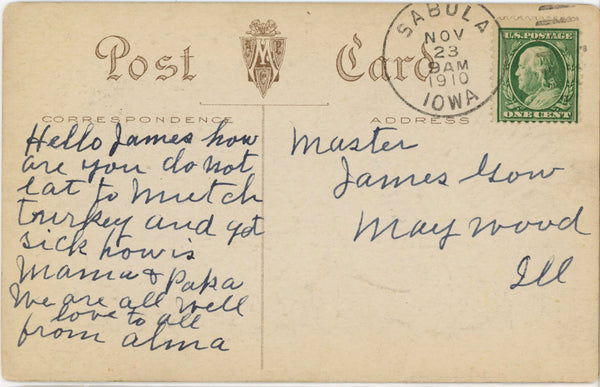 Post Card
SABULA
NOV
23
9AM
1910
IOWA
U.S. POSTAGE
ONE CENT
CORRESPONDENCE
ADDRESS
Hello James how
are you do not
eat to mutch
turkey and get
sick how is
Mama & Papa
We are all well
love to all
from alma
Master
James Gow
Maywood
Ill